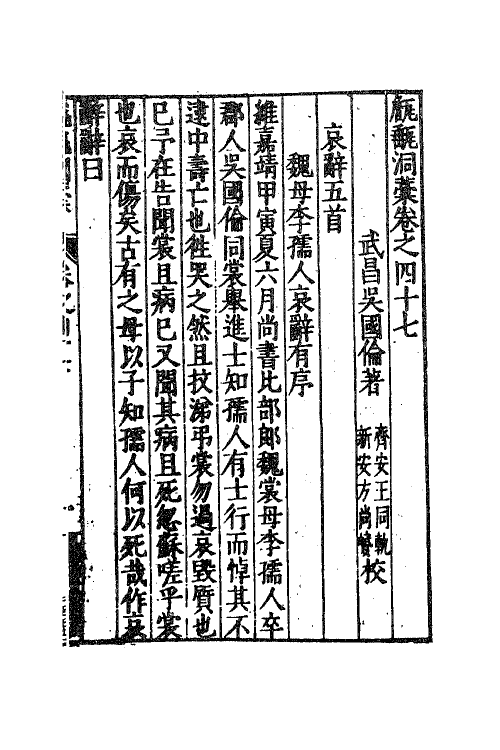 甔甀洞藁卷之四十七
武昌吳國倫著
齊安王同軌
新安方尚贇校
哀辭五首
魏母李孺人哀辭有序
維嘉靖甲寅夏六月尚書比部郎魏裳母李孺人卒
郡人吳國倫同裳舉進士知孺人有士行而悼其不
逮中壽亡也徃哭之然且抆涕弔裳勿過哀毀質也
巳予在告聞裳且病巳又聞其病且死忽蘇嗟乎裳
也哀而傷矣古有之母以子知孺人何以死哉作哀
辭辭曰
卷之四十七